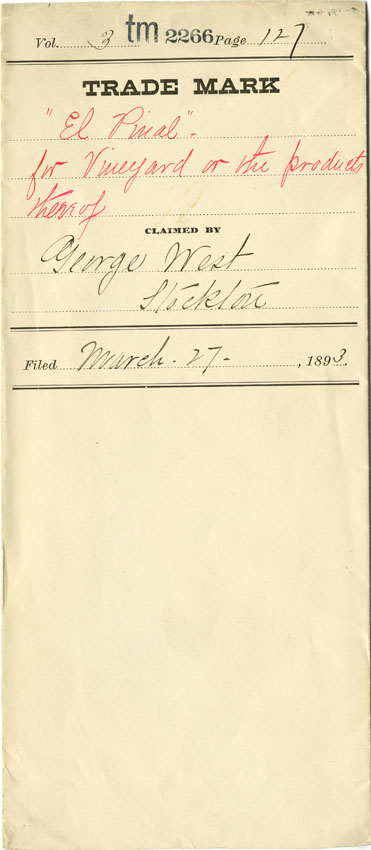 Vol. 3 tm 2266 Page 127
TRADE MARK
"El Pinal".
for Vineyard or the products
thereof
CLAIMED BY
George West
Stockton
Filed March 27 , 1893.